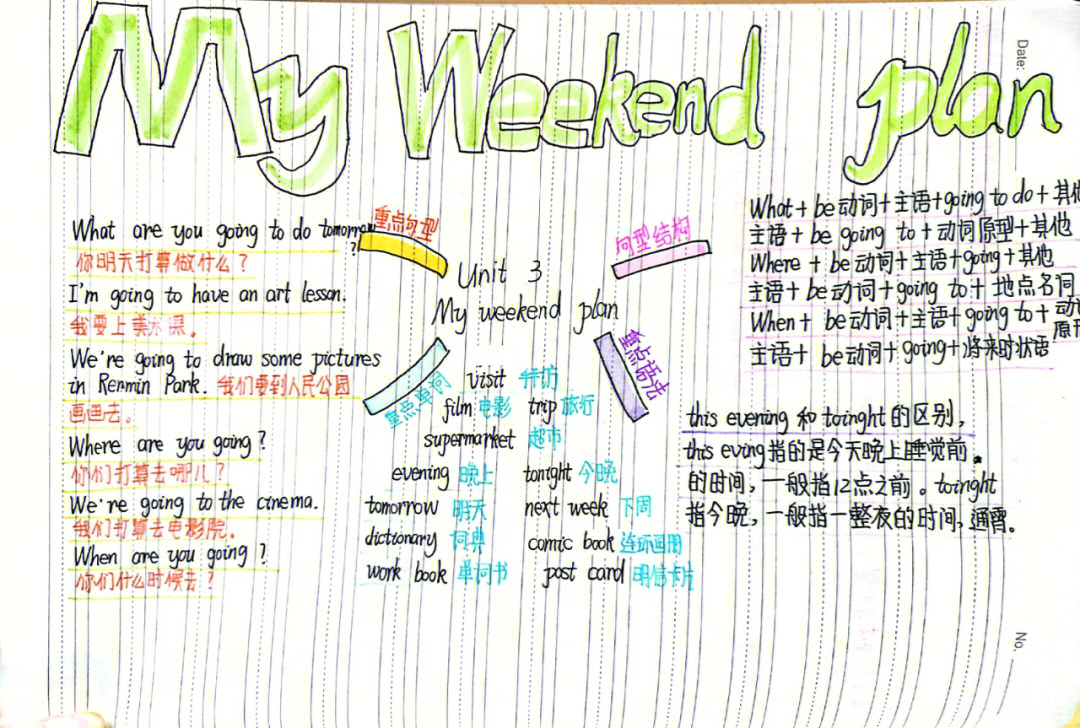 My Weekend plan
Date:
What are you going to do tomorrow
?
你明天打算做什么？
I'm going to have an art lesson.
我要上美术课。
We're going to draw some pictures
in Renmin Park. 我们要到人民公园
画画去。
Where are you going?
你们打算去哪儿？
We're going to the cinema.
我们打算去电影院。
When are you going?
你们什么时候去？
重点句型
句型结构
Unit 3
My weekend plan
重点单词
重点语法
visit 拜访
film 电影 trip 旅行
supermarket 超市
evening 晚上 tonight 今晚
tomorrow 明天 next week 下周
dictionary 词典 comic book 连环画册
work book 单词书 post card 明信卡片
What+be动词+主语+going to do+其他
主语+be going to+动词原型+其他
Where+be动词+主语+going+其他
主语+be动词+going to+地点名词
When+be动词+主语+going to+动词
原形
主语+be动词+going+将来时状语
this evening 和 toinght 的区别，
this eving 指的是今天晚上睡觉前。
的时间，一般指12点之前。toinght
指今晚，一般指一整夜的时间，通宵。
No.